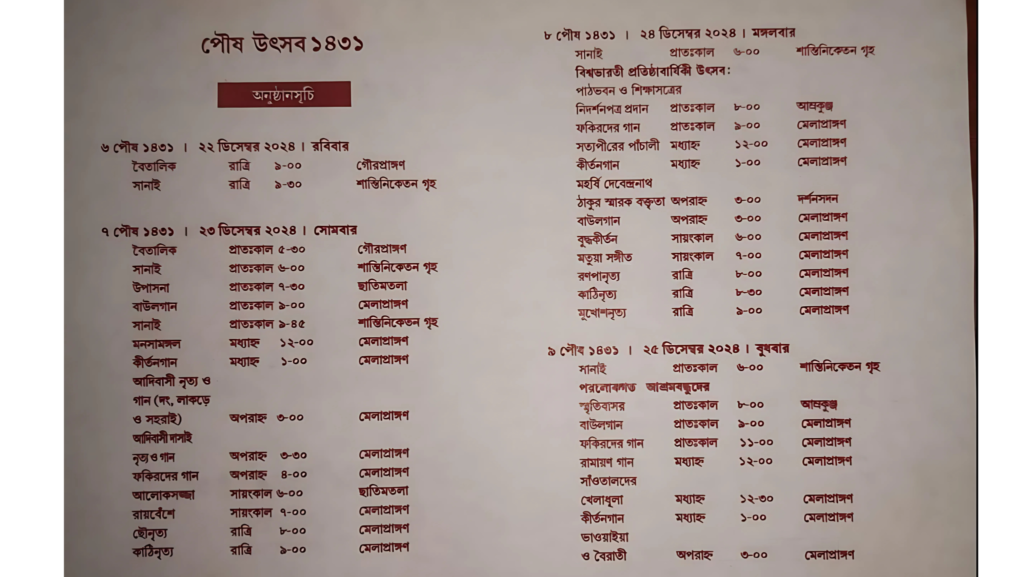 পৌষ উৎসব ১৪৩১
অনুষ্ঠানসূচি
৬ পৌষ ১৪৩১ । ২২ ডিসেম্বর ২০২৪ । রবিবার
বৈতালিক রাত্রি ৯-০০ গৌরপ্রাঙ্গণ
সানাই রাত্রি ৯-৩০ শান্তিনিকেতন গৃহ
৭ পৌষ ১৪৩১ । ২৩ ডিসেম্বর ২০২৪ । সোমবার
বৈতালিক প্রাতঃকাল ৫-৩০ গৌরপ্রাঙ্গণ
সানাই প্রাতঃকাল ৬-০০ শান্তিনিকেতন গৃহ
উপাসনা প্রাতঃকাল ৭-৩০ ছাতিমতলা
বাউলগান প্রাতঃকাল ৯-০০ মেলাপ্রাঙ্গণ
সানাই প্রাতঃকাল ৯-৪৫ শান্তিনিকেতন গৃহ
মনসামঙ্গল মধ্যাহ্ন ১২-০০ মেলাপ্রাঙ্গণ
কীর্তনগান মধ্যাহ্ন ১-০০ মেলাপ্রাঙ্গণ
আদিবাসী নৃত্য ও
গান (দং, লাকড়ে
ও সহরাই) অপরাহ্ন ৩-০০ মেলাপ্রাঙ্গণ
আদিবাসী দাসাই
নৃত্য ও গান অপরাহ্ন ৩-৩০ মেলাপ্রাঙ্গণ
ফকিরদের গান অপরাহ্ন ৪-০০ মেলাপ্রাঙ্গণ
আলোকসজ্জা সায়ংকাল ৬-০০ ছাতিমতলা
রায়বেঁশে সায়ংকাল ৭-০০ মেলাপ্রাঙ্গণ
ছৌনৃত্য রাত্রি ৮-০০ মেলাপ্রাঙ্গণ
কাঠিনৃত্য রাত্রি ৯-০০ মেলাপ্রাঙ্গণ
৮ পৌষ ১৪৩১ । ২৪ ডিসেম্বর ২০২৪ । মঙ্গলবার
সানাই প্রাতঃকাল ৬-০০ শান্তিনিকেতন গৃহ
বিশ্বভারতী প্রতিষ্ঠাবার্ষিকী উৎসব:
পাঠভবন ও শিক্ষাসত্রের
নিদর্শনপত্র প্রদান প্রাতঃকাল ৮-০০ আম্রকুঞ্জ
ফকিরদের গান প্রাতঃকাল ৯-০০ মেলাপ্রাঙ্গণ
সত্যপীরের পাঁচালী মধ্যাহ্ন ১২-০০ মেলাপ্রাঙ্গণ
কীর্তনগান মধ্যাহ্ন ১-০০ মেলাপ্রাঙ্গণ
মহর্ষি দেবেন্দ্রনাথ
ঠাকুর স্মারক বক্তৃতা অপরাহ্ন ৩-০০ দর্শনসদন
বাউলগান অপরাহ্ন ৩-০০ মেলাপ্রাঙ্গণ
বুদ্ধকীর্তন সায়ংকাল ৬-০০ মেলাপ্রাঙ্গণ
মতুয়া সঙ্গীত সায়ংকাল ৭-০০ মেলাপ্রাঙ্গণ
রণপানৃত্য রাত্রি ৮-০০ মেলাপ্রাঙ্গণ
কাঠিনৃত্য রাত্রি ৮-৩০ মেলাপ্রাঙ্গণ
মুখোশনৃত্য রাত্রি ৯-০০ মেলাপ্রাঙ্গণ
৯ পৌষ ১৪৩১ । ২৫ ডিসেম্বর ২০২৪ । বুধবার
সানাই প্রাতঃকাল ৬-০০ শান্তিনিকেতন গৃহ
পরলোকগত আশ্রমবন্ধুদের
স্মৃতিবাসর প্রাতঃকাল ৮-০০ আম্রকুঞ্জ
বাউলগান প্রাতঃকাল ৯-০০ মেলাপ্রাঙ্গণ
ফকিরদের গান প্রাতঃকাল ১১-০০ মেলাপ্রাঙ্গণ
রামায়ণ গান মধ্যাহ্ন ১২-০০ মেলাপ্রাঙ্গণ
সাঁওতালদের
খেলাধূলা মধ্যাহ্ন ১২-৩০ মেলাপ্রাঙ্গণ
কীর্তনগান মধ্যাহ্ন ১-০০ মেলাপ্রাঙ্গণ
ভাওয়াইয়া
ও বৈরাতী অপরাহ্ন ৩-০০ মেলাপ্রাঙ্গণ